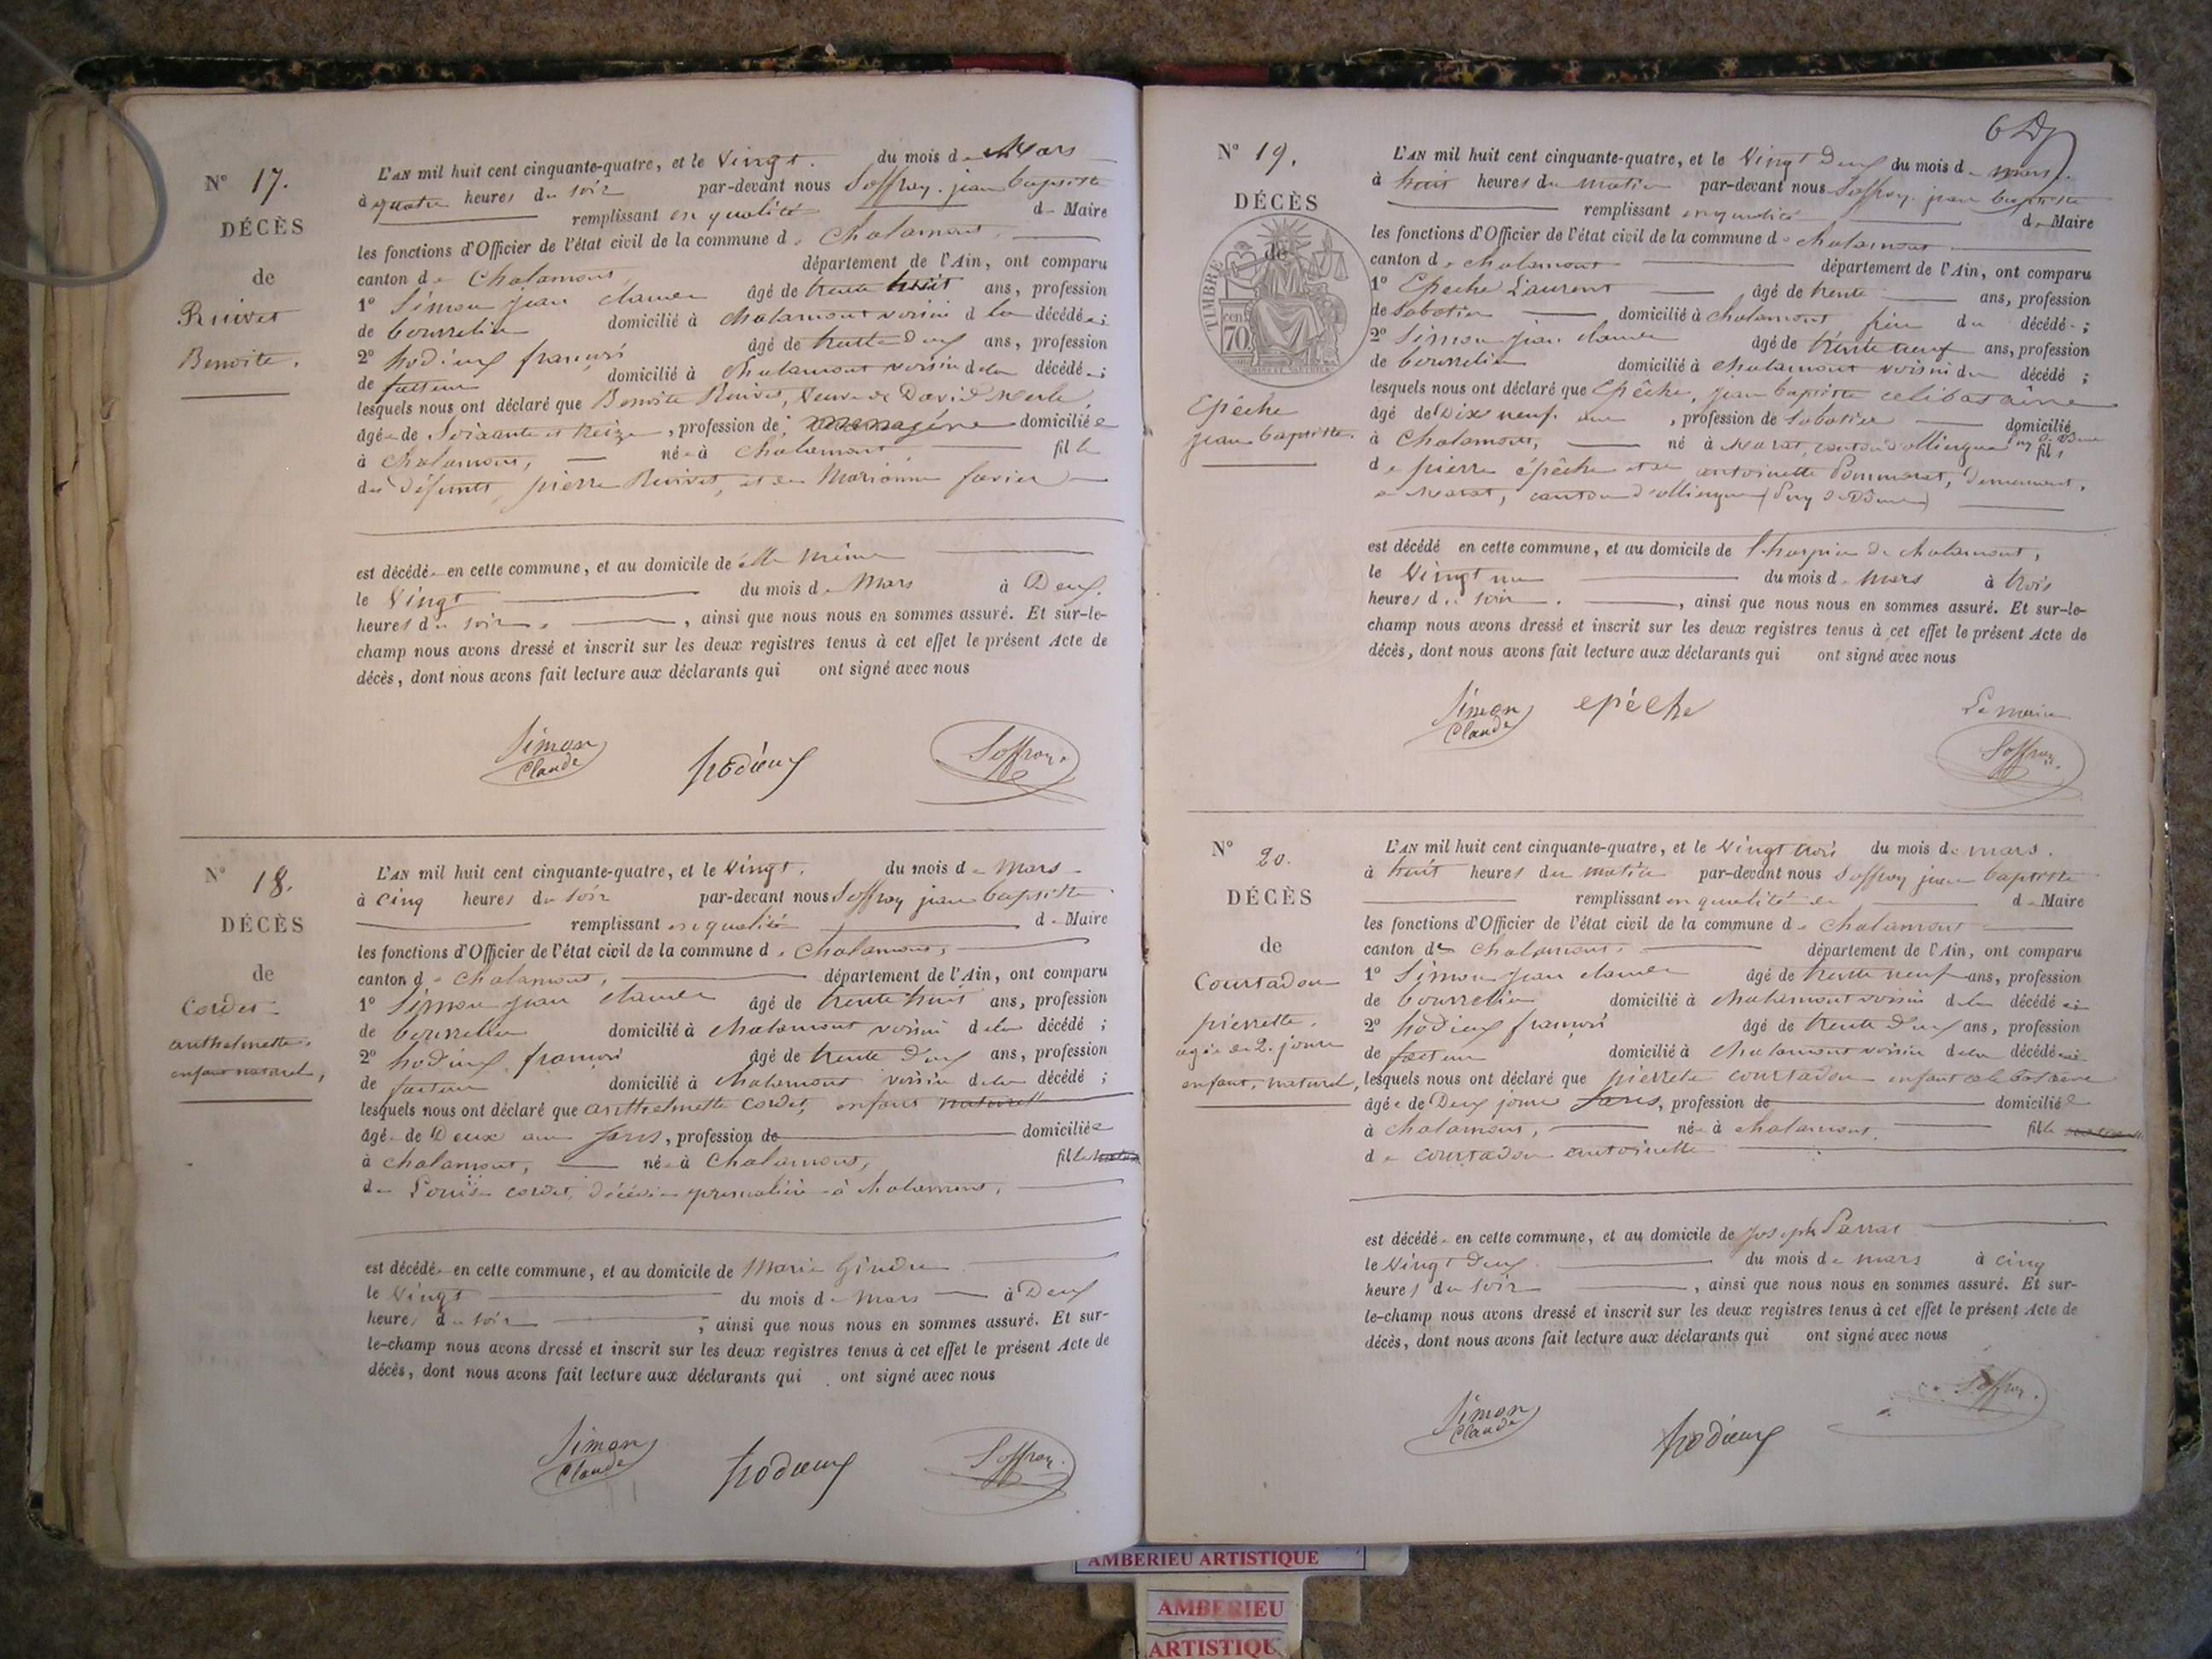 N° 17.
DÉCÈS
de
Ruivet
Benoite.
L'AN mil huit cent cinquante-quatre, et le Vingt. du mois de Mars
à quatre heures du soir par-devant nous Soffray jean baptiste
remplissant en qualité de Maire
les fonctions d'Officier de l'état civil de la commune de Chalamont,
canton de Chalamont, département de l'Ain, ont comparu
1° Simon jean claude âgé de trente huit ans, profession
de bourrelier domicilié à chalamont voisin de la décédée ;
2° hodieux françois âgé de trente deux ans, profession
de facteur domicilié à Chalamont voisin de la décédée ;
lesquels nous ont déclaré que Benoite Ruivet, Veuve de David Merle,
âgée de Soixante et treize, profession de ménagère domiciliée
à Chalamont, née à Chalamont fille
des défunts, pierre Ruivet, et de Marianne favier
est décédée en cette commune, et au domicile de elle même
le Vingt du mois de Mars à Deux
heures du soir, ainsi que nous nous en sommes assuré. Et sur-le-
champ nous avons dressé et inscrit sur les deux registres tenus à cet effet le présent Acte de
décès, dont nous avons fait lecture aux déclarants qui ont signé avec nous
Simon
Claude
hodieux
Soffray
N° 18.
DÉCÈS
de
Cordet
anthelmette,
enfant naturel,
L'AN mil huit cent cinquante-quatre, et le Vingt. du mois de Mars
à cinq heures du soir par-devant nous Soffray jean baptiste
remplissant en qualité de Maire
les fonctions d'Officier de l'état civil de la commune de Chalamont,
canton de Chalamont, département de l'Ain, ont comparu
1° Simon jean claude âgé de trente huit ans, profession
de bourrelier domicilié à chalamont voisin de la décédé ;
2° hodieux françois âgé de trente deux ans, profession
de facteur domicilié à chalamont voisin de la décédé ;
lesquels nous ont déclaré que anthelmette cordet, enfant naturel
âgée de Deux ans, profession de domiciliée
à chalamont, née à Chalamont, fille
de Louise cordet, décédée à chalamont,
est décédée en cette commune, et au domicile de Marie Gindre
le Vingt du mois de Mars à Deux
heures du soir, ainsi que nous nous en sommes assuré. Et sur-
le-champ nous avons dressé et inscrit sur les deux registres tenus à cet effet le présent Acte de
décès, dont nous avons fait lecture aux déclarants qui ont signé avec nous
Simon
Claude
hodieux
Soffray
N° 19.
DÉCÈS
de
TIMBRE
70
cen
Epêche
jean baptiste.
L'AN mil huit cent cinquante-quatre, et le Vingt Deux du mois de mars.
à huit heures du matin par-devant nous Soffray jean baptiste
remplissant en qualité de Maire
les fonctions d'Officier de l'état civil de la commune de chalamont
canton de chalamont département de l'Ain, ont comparu
1° Epeche Laurent âgé de trente ans, profession
de Sabotier domicilié à chalamont frère du décédé ;
2° Simon jean claude âgé de trente neuf ans, profession
de bourrelier domicilié à chalamont voisin du décédé ;
lesquels nous ont déclaré que Epêche, jean baptiste célibataire
âgé de Dix neuf ans, profession de Sabotier domicilié
à Chalamont, né à Marat, canton d'olliergue puy de Dome fils
de pierre épêche et de antoinette Pommerat, Demeurant
à Marat, canton d'olliergue (Puy de Dome)
est décédé en cette commune, et au domicile de l'hospice de chalamont,
le Vingt un du mois de Mars à trois
heures du soir, ainsi que nous nous en sommes assuré. Et sur-le-
champ nous avons dressé et inscrit sur les deux registres tenus à cet effet le présent Acte de
décès, dont nous avons fait lecture aux déclarants qui ont signé avec nous
Simon
Claude
epéche
Le maire
Soffray
N° 20.
DÉCÈS
de
Courtadon
pierrette.
agée de 2. jours
enfant, naturel,
L'AN mil huit cent cinquante-quatre, et le Vingt trois du mois de mars.
à huit heures du matin par-devant nous Soffray jean baptiste
remplissant en qualité de de Maire
les fonctions d'Officier de l'état civil de la commune de Chalamont
canton de Chalamont. département de l'Ain, ont comparu
1° Simon jean claude âgé de trente neuf ans, profession
de bourrelier domicilié à chalamont voisin de la décédée
2° hodieux françois âgé de trente deux ans, profession
de facteur domicilié à chalamont voisin de la décédée
lesquels nous ont déclaré que pierrette courtadon enfant celibataire
âgée de Deux jours ans, profession de domicilié
à chalamont, née à chalamont, fille
de courtadon antoinette
est décédée en cette commune, et au domicile de joseph Parras
le Vingt Deux du mois de mars à cinq
heures du soir, ainsi que nous nous en sommes assuré. Et sur-
le-champ nous avons dressé et inscrit sur les deux registres tenus à cet effet le présent Acte de
décès, dont nous avons fait lecture aux déclarants qui ont signé avec nous
Simon
Claude
hodieux
Soffray
AMBERIEU ARTISTIQUE
AMBERIEU
ARTISTIQUE